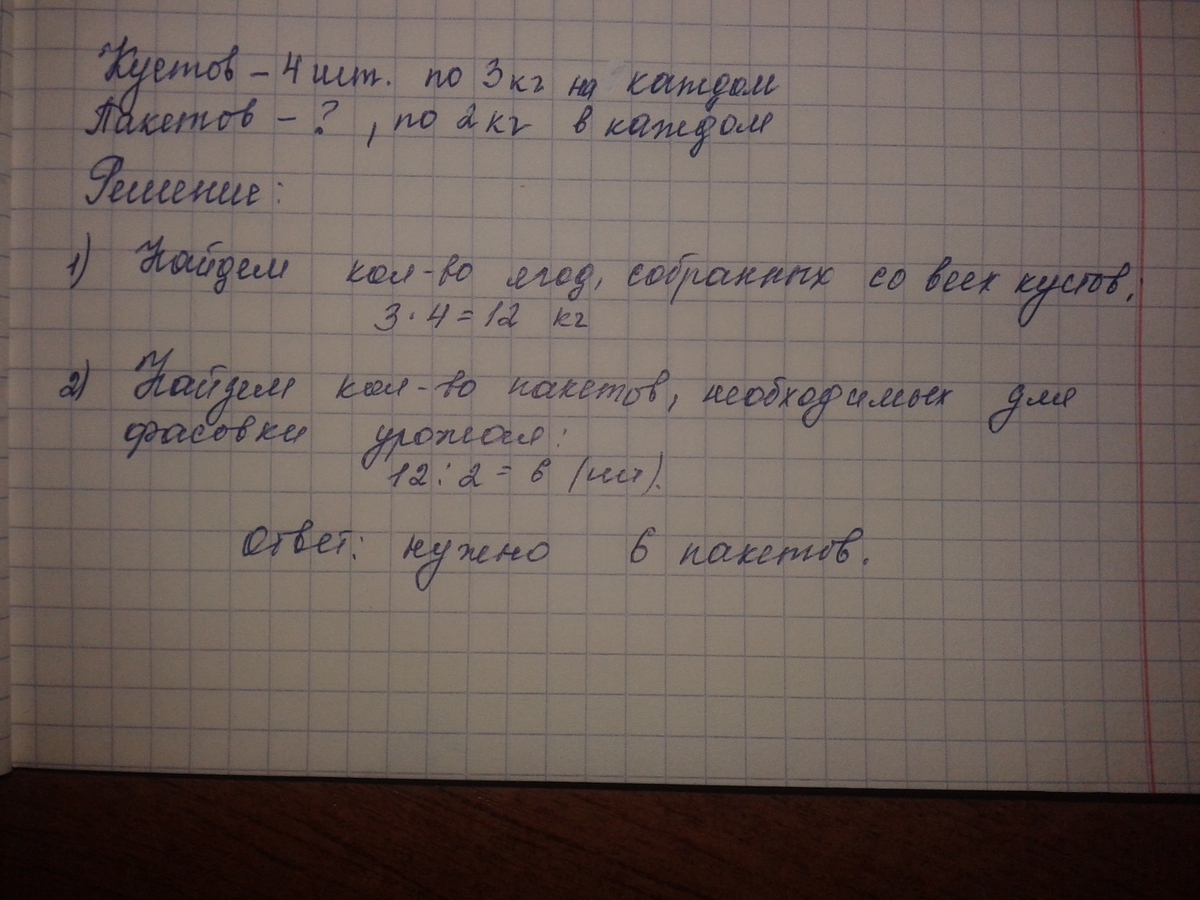 Кустов – 4 шт. по 3 кг на каждом
Пакетов – ? , по 2 кг в каждом
Решение:
1) Найдем кол-во ягод, собранных со всех кустов:
3 · 4 = 12 кг
2) Найдем кол-во пакетов, необходимых для
фасовки урожая:
12 : 2 = 6 (шт).
Ответ: нужно 6 пакетов.